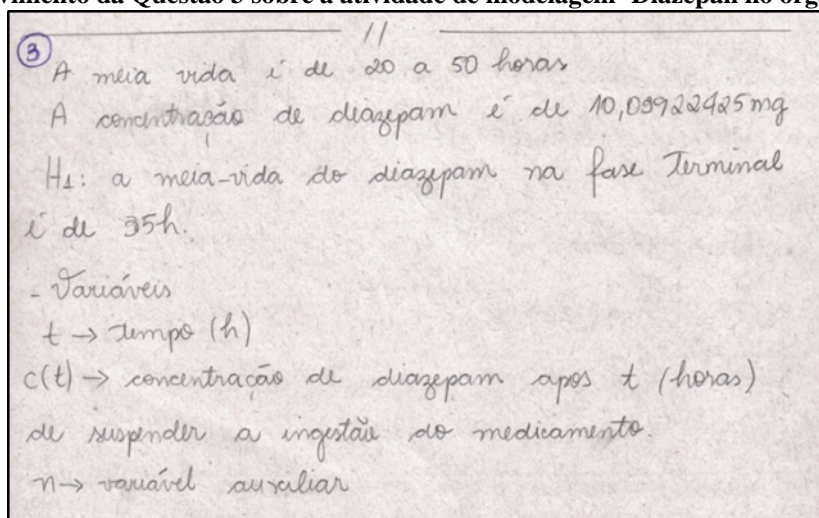 vimento da Questão 3 sobre a atividade de modelagem "Diazepan no org
3
A meia vida é de 20 a 50 horas
A concentração de diazepam é de 10,09922425mg
H1: a meia-vida do diazepam na fase Terminal
é de 35h.
- Variáveis
t → tempo (h)
c(t) → concentração de diazepam apos t (horas)
de suspender a ingestão do medicamento.
n → variável auxiliar